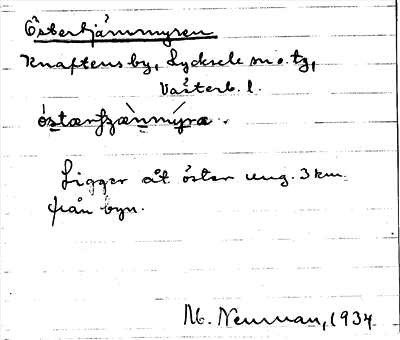 Östertjärnmyren
Knaftens by, Lycksele sn o. tg,
Västerb. l.
Ligger åt öster ung. 3 km.
från byn.
M. Neuman, 1934